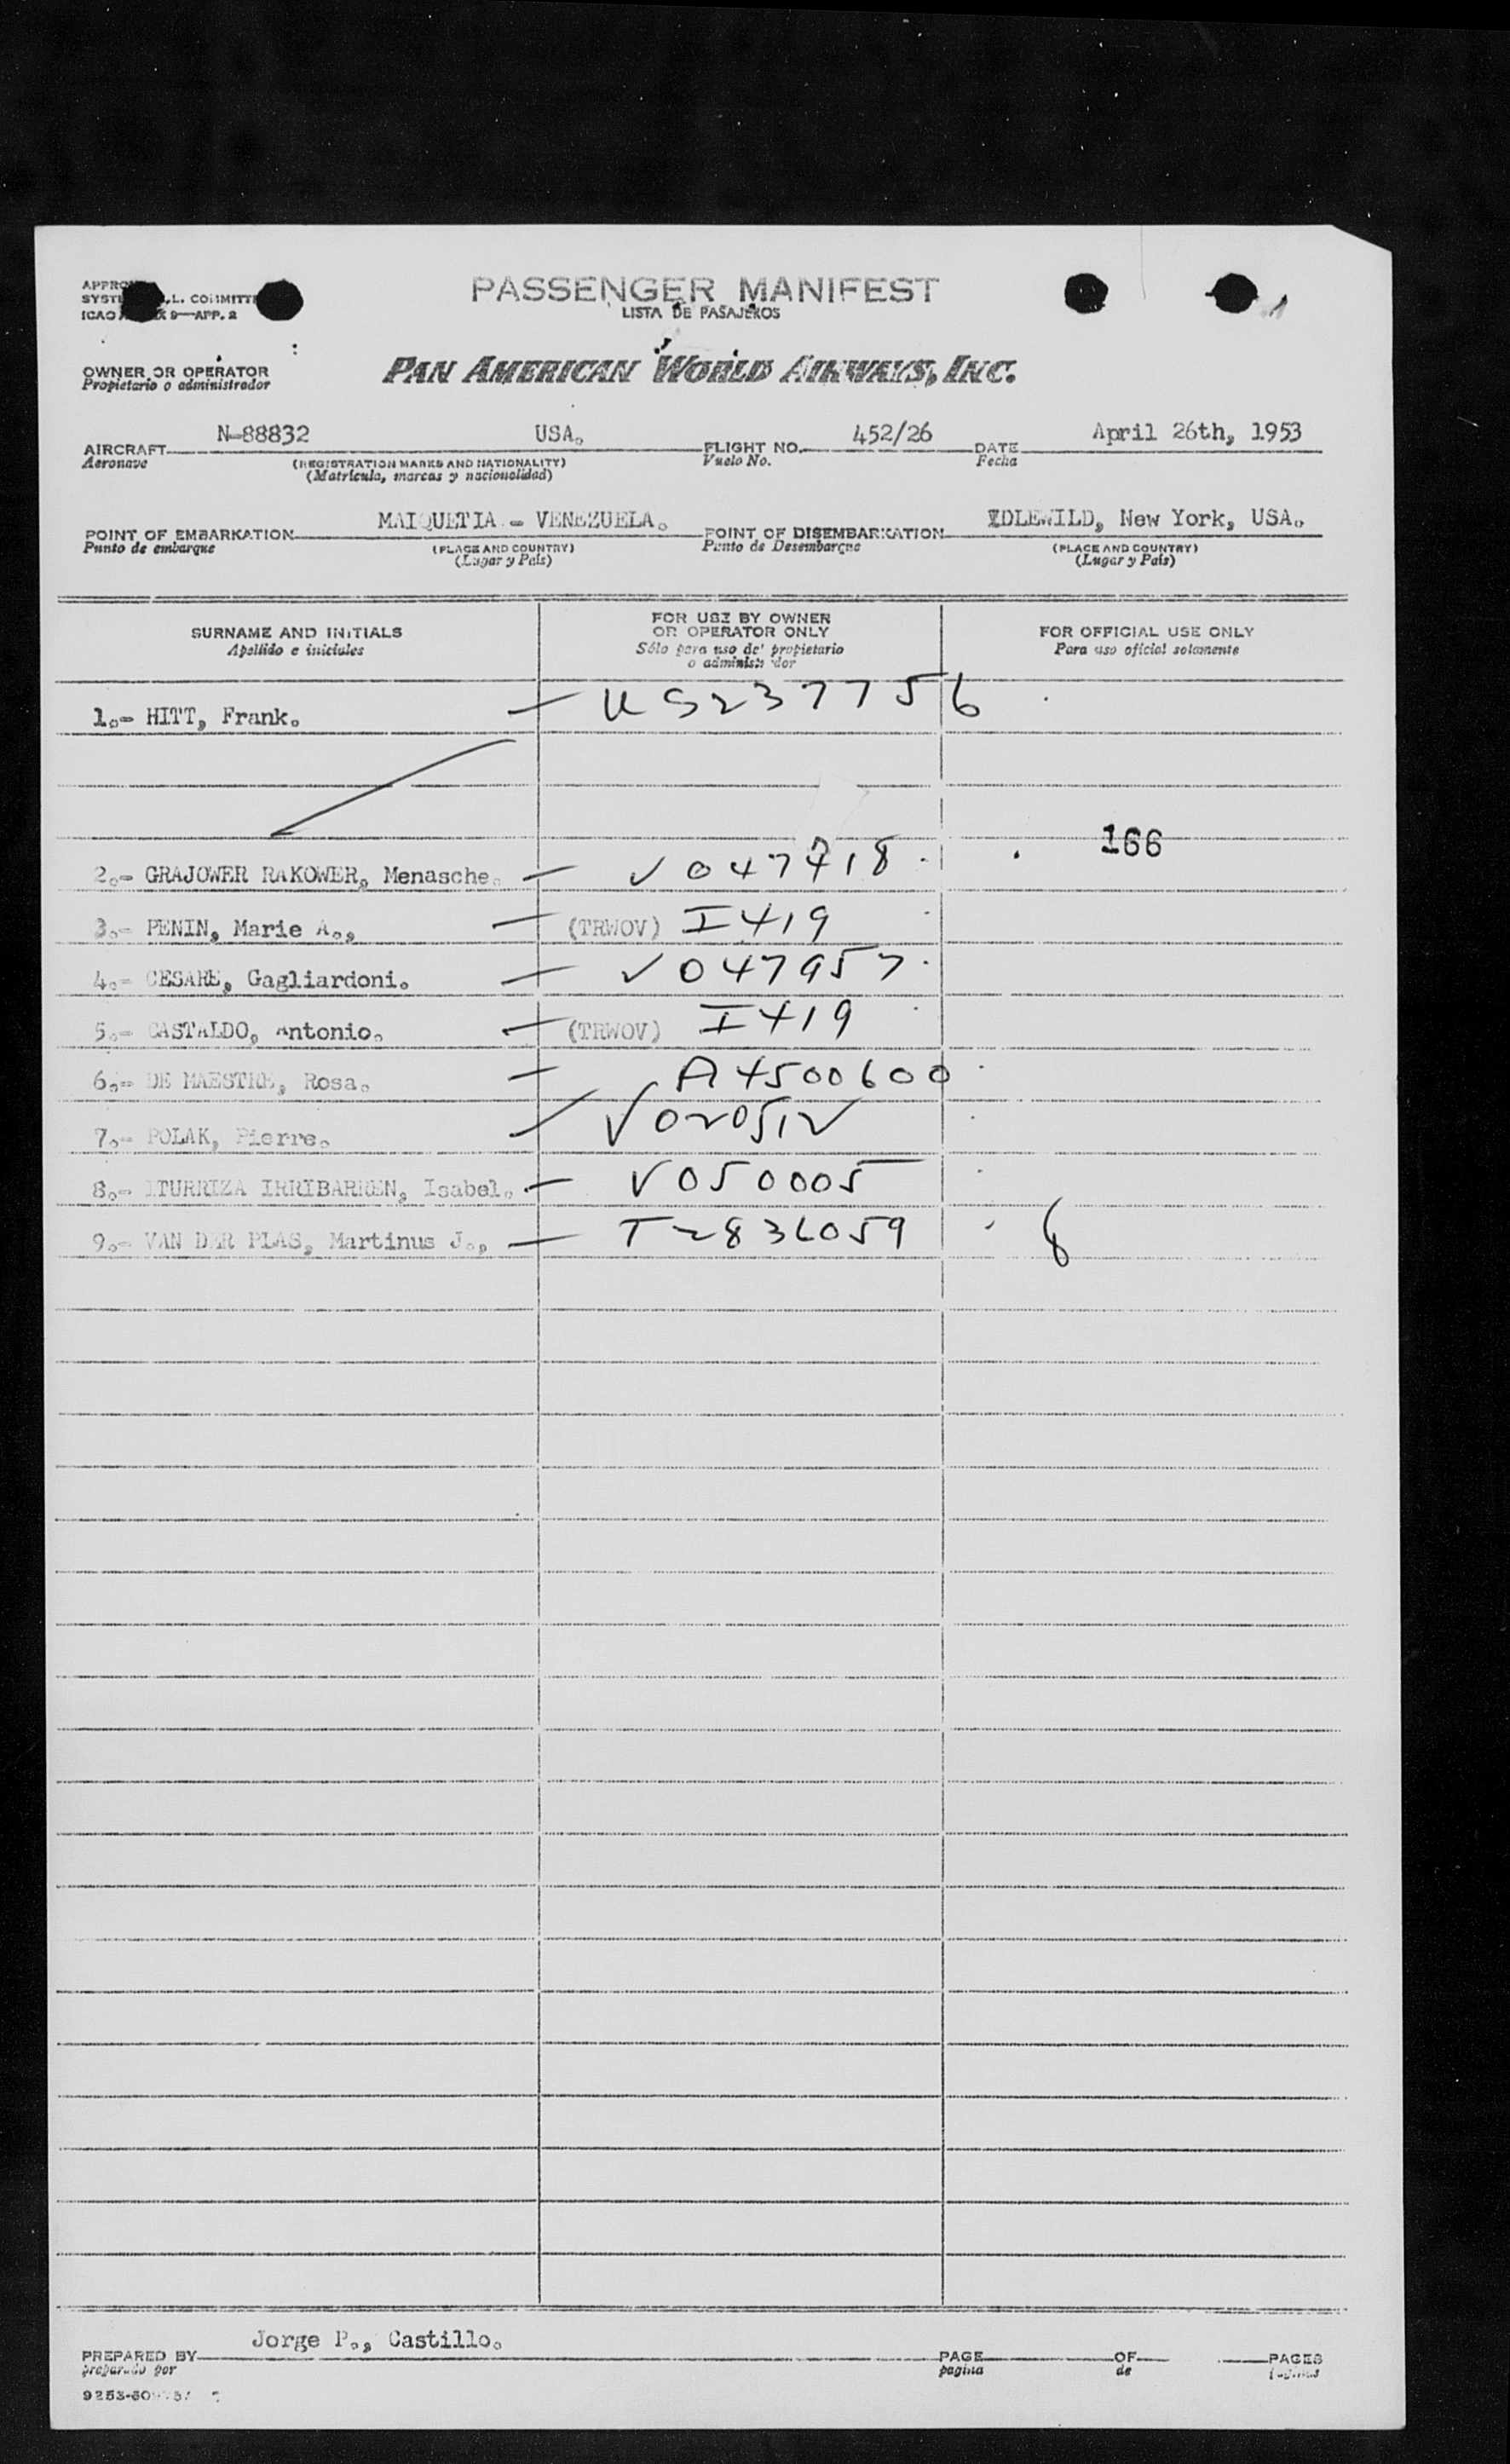 PASSENGER MANIFEST
LISTA DE PASAJEROS
OWNER OR OPERATOR
Propietario o administrador
PAN AMERICAN WORLD AIRWAYS, INC.
AIRCRAFT N-88832 USA. FLIGHT NO. 452/26 DATE April 26th, 1953
Aeronave (REGISTRATION MARKS AND NATIONALITY) Vuelo No. Fecha
(Matrícula, marcas y nacionalidad)
POINT OF EMBARKATION MAIQUETIA - VENEZUELA. POINT OF DISEMBARKATION IDLEWILD, New York, USA.
Punto de embarque (PLACE AND COUNTRY) Punto de Desembarque (PLACE AND COUNTRY)
(Lugar y País) (Lugar y País)
SURNAME AND INITIALS
Apellido e iniciales
FOR USE BY OWNER
OR OPERATOR ONLY
Sólo para uso del propietario
o administrador
FOR OFFICIAL USE ONLY
Para uso oficial solamente
1.- HITT, Frank. — US237756
166
2.- GRAJOWER RAKOWER, Menasche. — V047718
3.- PENIN, Marie A., — (TRWOV) I419
4.- CESARE, Gagliardoni. — V047957
5.- CASTALDO, Antonio. — (TRWOV) I419
6.- DE MAESTRE, Rosa. — A4500600
7.- POLAK, Pierre. — V020512
8.- ITURRIZA IRRIBARREN, Isabel. — V050005
9.- VAN DER PLAS, Martinus J., — T2836059
PREPARED BY Jorge P., Castillo. PAGE OF PAGES
preparado por pagina de paginas